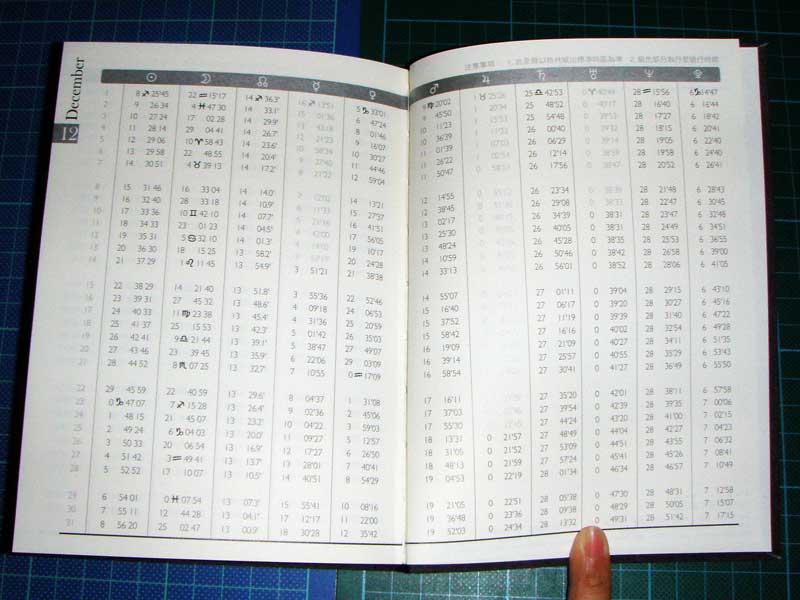 注意事項: 1. 此星曆以格林威治標準時區為準 2. 銀色部份為行星逆行時期
December
12
☉ ☽ ☊ ☿ ♀ ♂ ♃ ♄ ♅ ♆ ♇
1 8 ♐ 25'45 22 ♒ 15'17 14 ♐ 36.3' 16 ♐ 13'51 5 ♑ 33'01 ♍ 20'02 1 ♉ 25'26 25 ♎ 42'53 0 ♈ 40'49 28 ♒ 15'56 6 ♑ 14'47
2 9 26 34 4 ♓ 47 30 14 33.1' 6 47'24 9 45'50 1 20'34 25 48'52 28 16'40 6 16'44
3 10 27 24 17 02 28 14 29.9' 8 01'46 10 11'23 25 54'48 28 17'26 6 18'42
4 11 28 14 29 04 41 14 26.7' 9 16'07 10 36'39 26 00'40 39'32 28 18'15 6 20'41
5 12 29 06 10 ♈ 58 43 14 23.6' 10 30'27 11 01'39 26 06'29 39'14 28 19'05 6 22'40
6 13 29 58 22 48 55 14 20.4' 11 44'46 11 26'22 26 12'14 38'59 28 19'58 6 24'40
7 14 30 51 4 ♉ 39 13 14 17.2' 12 59'04 11 50'47 26 17'56 38'47 28 20'52 6 26'41
8 15 31 46 16 33 04 14 14.0' 14 13'21 12 14'55 26 23'34 38'39 28 21'48 6 28'43
9 16 32 40 28 33 18 14 10.9' 15 27'37 12 38'45 26 29'08 38'33 28 22'47 6 30'45
10 17 33 36 10 ♊ 42 10 14 07.7' 16 41'51 13 02'17 26 34'39 38'31 28 23'47 6 32'48
11 18 34 33 23 01 23 14 04.5' 17 56'05 13 25'30 26 40'05 38'31 28 24'49 6 34'51
12 19 35 31 5 ♋ 32 10 14 01.3' 19 10'17 13 48'24 26 45'28 38'35 28 25'53 6 36'55
13 20 36 30 18 15 25 13 58.2' 20 24'28 14 10'59 26 50'46 38'42 28 26'58 6 39'00
14 21 37 29 1 ♌ 11 45 13 54.9' 3 51'21 21 38'38 14 33'13 26 56'01 38'52 28 28'06 6 41'05
15 22 38 29 14 21 40 13 51.8' 3 55'36 22 52'46 14 55'07 27 01'11 0 39'04 28 29'15 6 43'10
16 23 39 31 27 45 32 13 48.6' 4 09'18 24 06'53 15 16'40 27 06'17 0 39'20 28 30'27 6 45'16
17 24 40 33 11 ♍ 23 38 13 45.4' 4 31'36 25 20'59 15 37'52 27 11'19 0 39'39 28 31'40 6 47'22
18 25 41 37 25 15 53 13 42.3' 5 01'42 26 35'03 15 58'42 27 16'16 0 40'02 28 32'54 6 49'28
19 26 42 41 9 ♎ 21 44 13 39.1' 5 38'47 27 49'07 16 19'09 27 21'09 0 40'27 28 34'11 6 51'35
20 27 43 46 23 39 45 13 35.9' 6 22'06 29 03'09 16 39'14 27 25'57 0 40'55 28 35'29 6 53'43
21 28 44 52 8 ♏ 07 25 13 32.7' 7 10'55 0 ♒ 17'09 16 58'54 27 30'41 0 41'27 28 36'49 6 55'50
22 29 45 59 22 40 59 13 29.6' 8 04'37 1 31'08 17 16'11 27 35'20 0 42'01 28 38'11 6 57'58
23 0 ♑ 47 07 7 ♐ 15 28 13 26.4' 9 02'36 2 45'06 17 37'03 27 39'54 0 42'39 28 39'35 7 00'06
24 1 48 15 21 45 07 13 23.2' 10 04'22 3 59'03 17 55'30 27 44'24 0 43'20 28 41'00 7 02'15
25 2 49 24 6 ♑ 04 03 13 20.0' 11 09'27 5 12'57 18 13'31 0 21'57 27 48'49 0 44'04 28 42'27 7 04'23
26 3 50 33 20 06 54 13 16.9' 12 17'27 6 26'50 18 31'05 0 21'52 27 53'09 0 44'51 28 43'55 7 06'32
27 4 51 42 3 ♒ 49 41 13 13.7' 13 28'01 7 40'41 18 48'13 0 21'59 27 57'24 0 45'41 28 45'26 7 08'41
28 5 52 52 17 10 07 13 10.5' 14 40'8 8 54'29 19 04'53 0 22'19 28 01'34 0 46'34 28 46'57 7 10'49
29 6 54 01 0 ♓ 07 54 13 07.3' 15 55'41 10 08'16 19 21'05 0 22'51 28 05'38 0 47'30 28 48'31 7 12'58
30 7 55 11 12 44 28 13 04.1' 17 12'17 11 22'00 19 36'48 0 23'36 28 09'38 0 48'29 28 50'06 7 15'07
31 8 56 20 25 02 47 13 00.9' 18 30'28 12 35'42 19 52'03 0 24'34 28 13'32 0 49'31 28 51'42 7 17'15